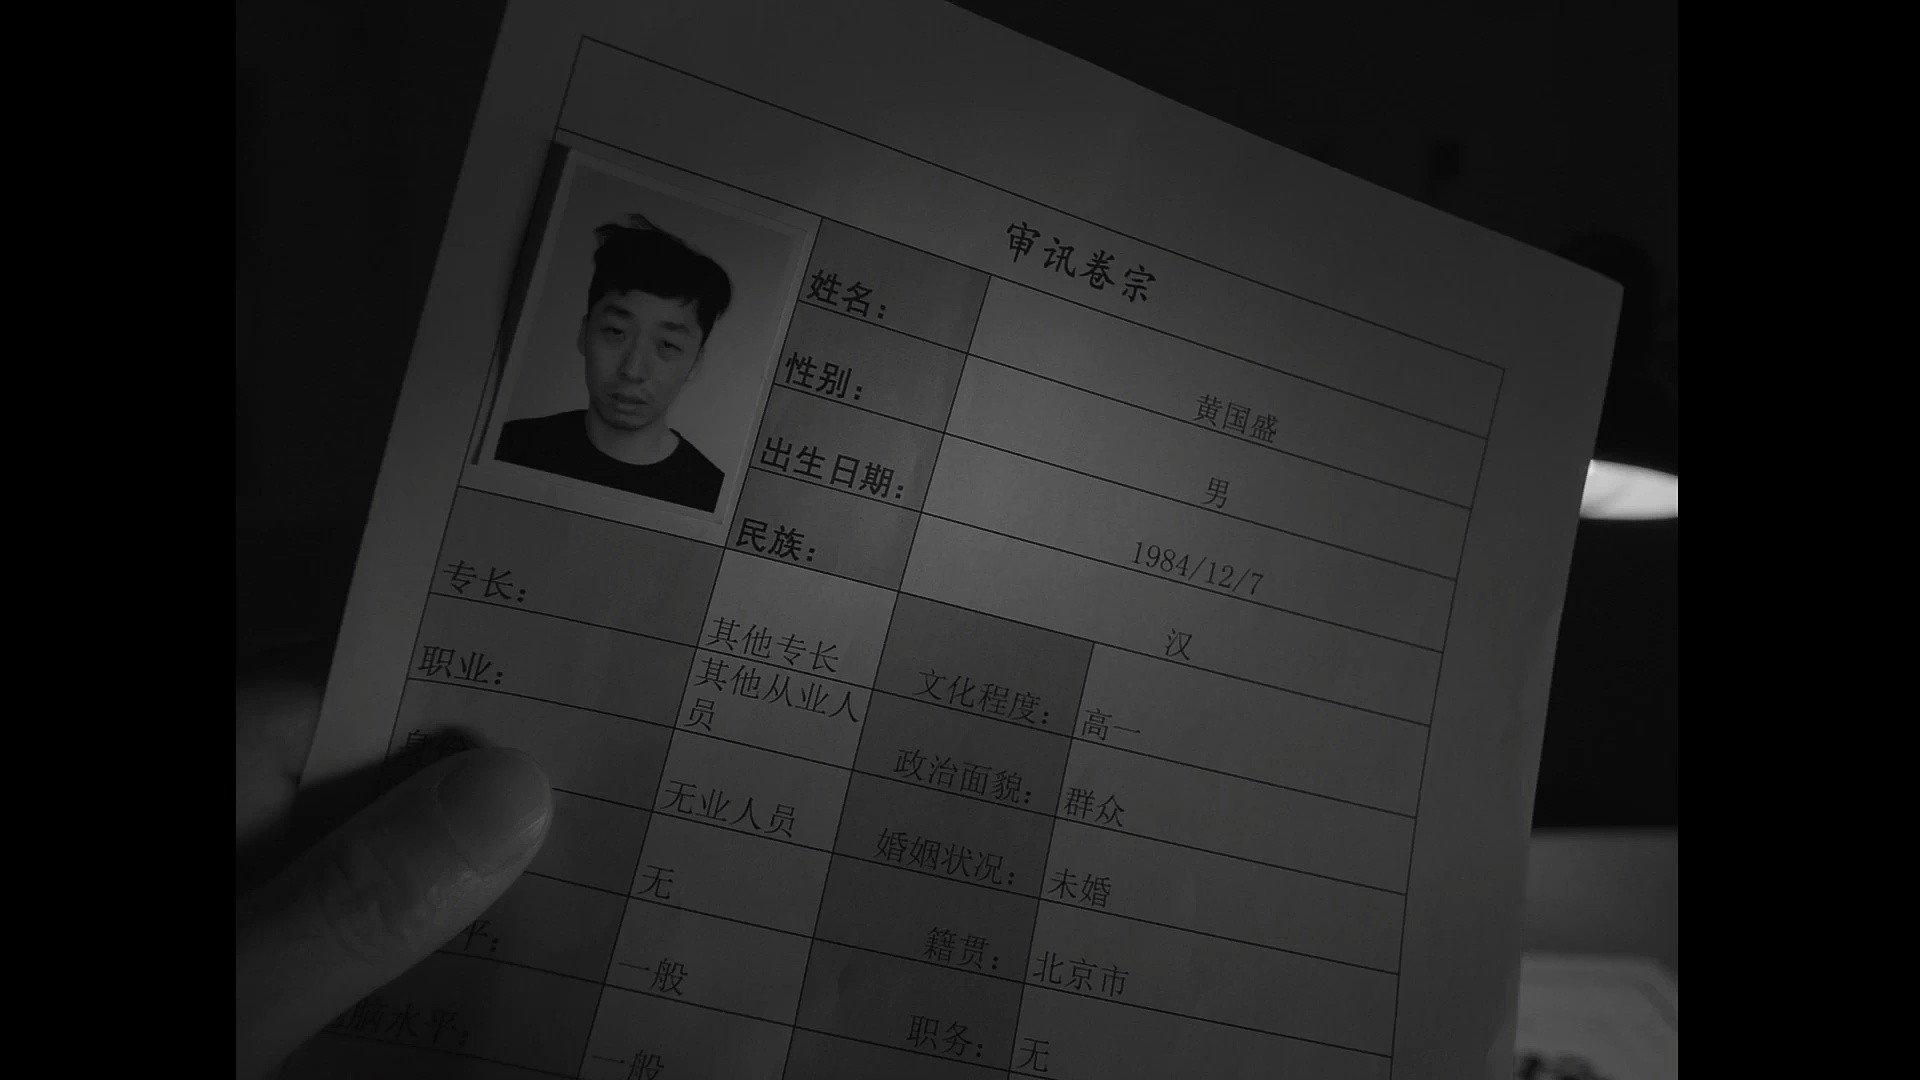 审讯卷宗
姓名： 黄国盛
性别： 男
出生日期： 1984/12/7
民族： 汉
专长： 其他专长 文化程度： 高一
职业： 其他从业人员 政治面貌： 群众
无业人员 婚姻状况： 未婚
无 籍贯： 北京市
平： 一般 职务： 无
脑水平： 一般